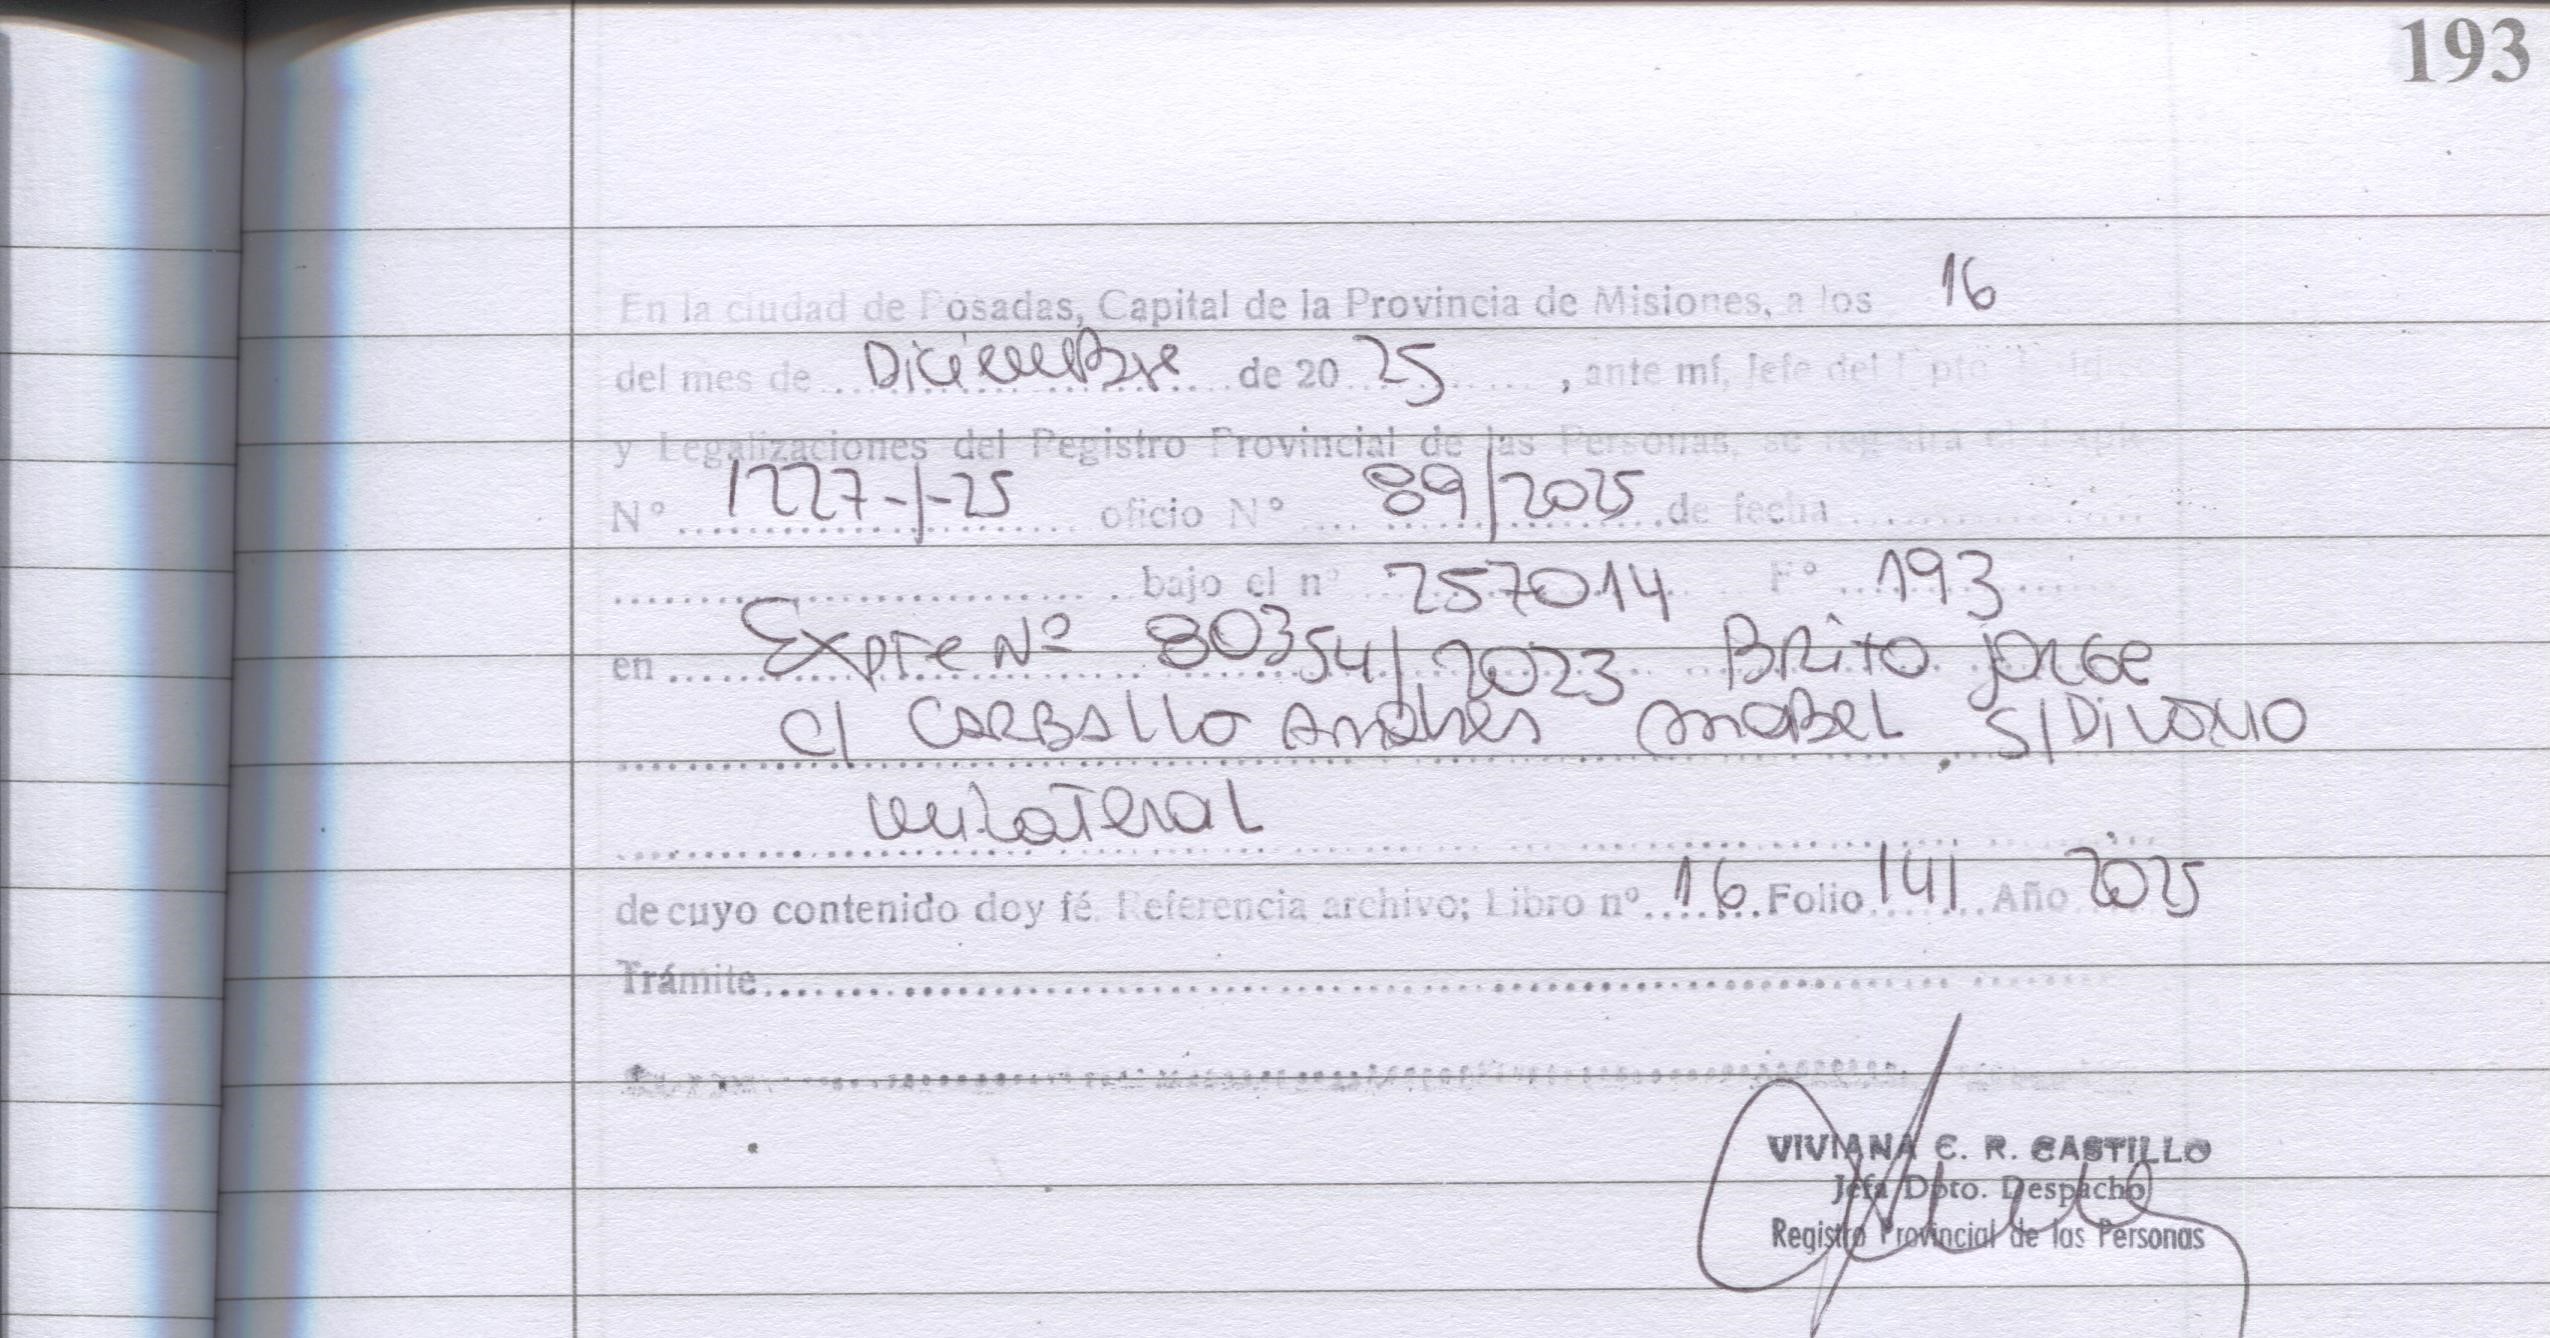 193
En la ciudad de Posadas, Capital de la Provincia de Misiones, a los 16
del mes de Diciembre de 20 25, ante mí, Jefe del Dpto
y Legalizaciones del Registro Provincial de las Personas, se registra el
Nº 1227-J-25 oficio Nº 89/2025 de fecha
bajo el nº 257014 Fº 193
en Expte Nº 80354/2023 Brito Jorge
c/ Carballo Andres Anabel s/Divorcio
unilateral
de cuyo contenido doy fé. Referencia archivo; Libro nº 16 Folio 141 Año 2025
Trámite
VIVIANA C. R. CASTILLO
Jefa Dpto. Despacho
Registro Provincial de las Personas